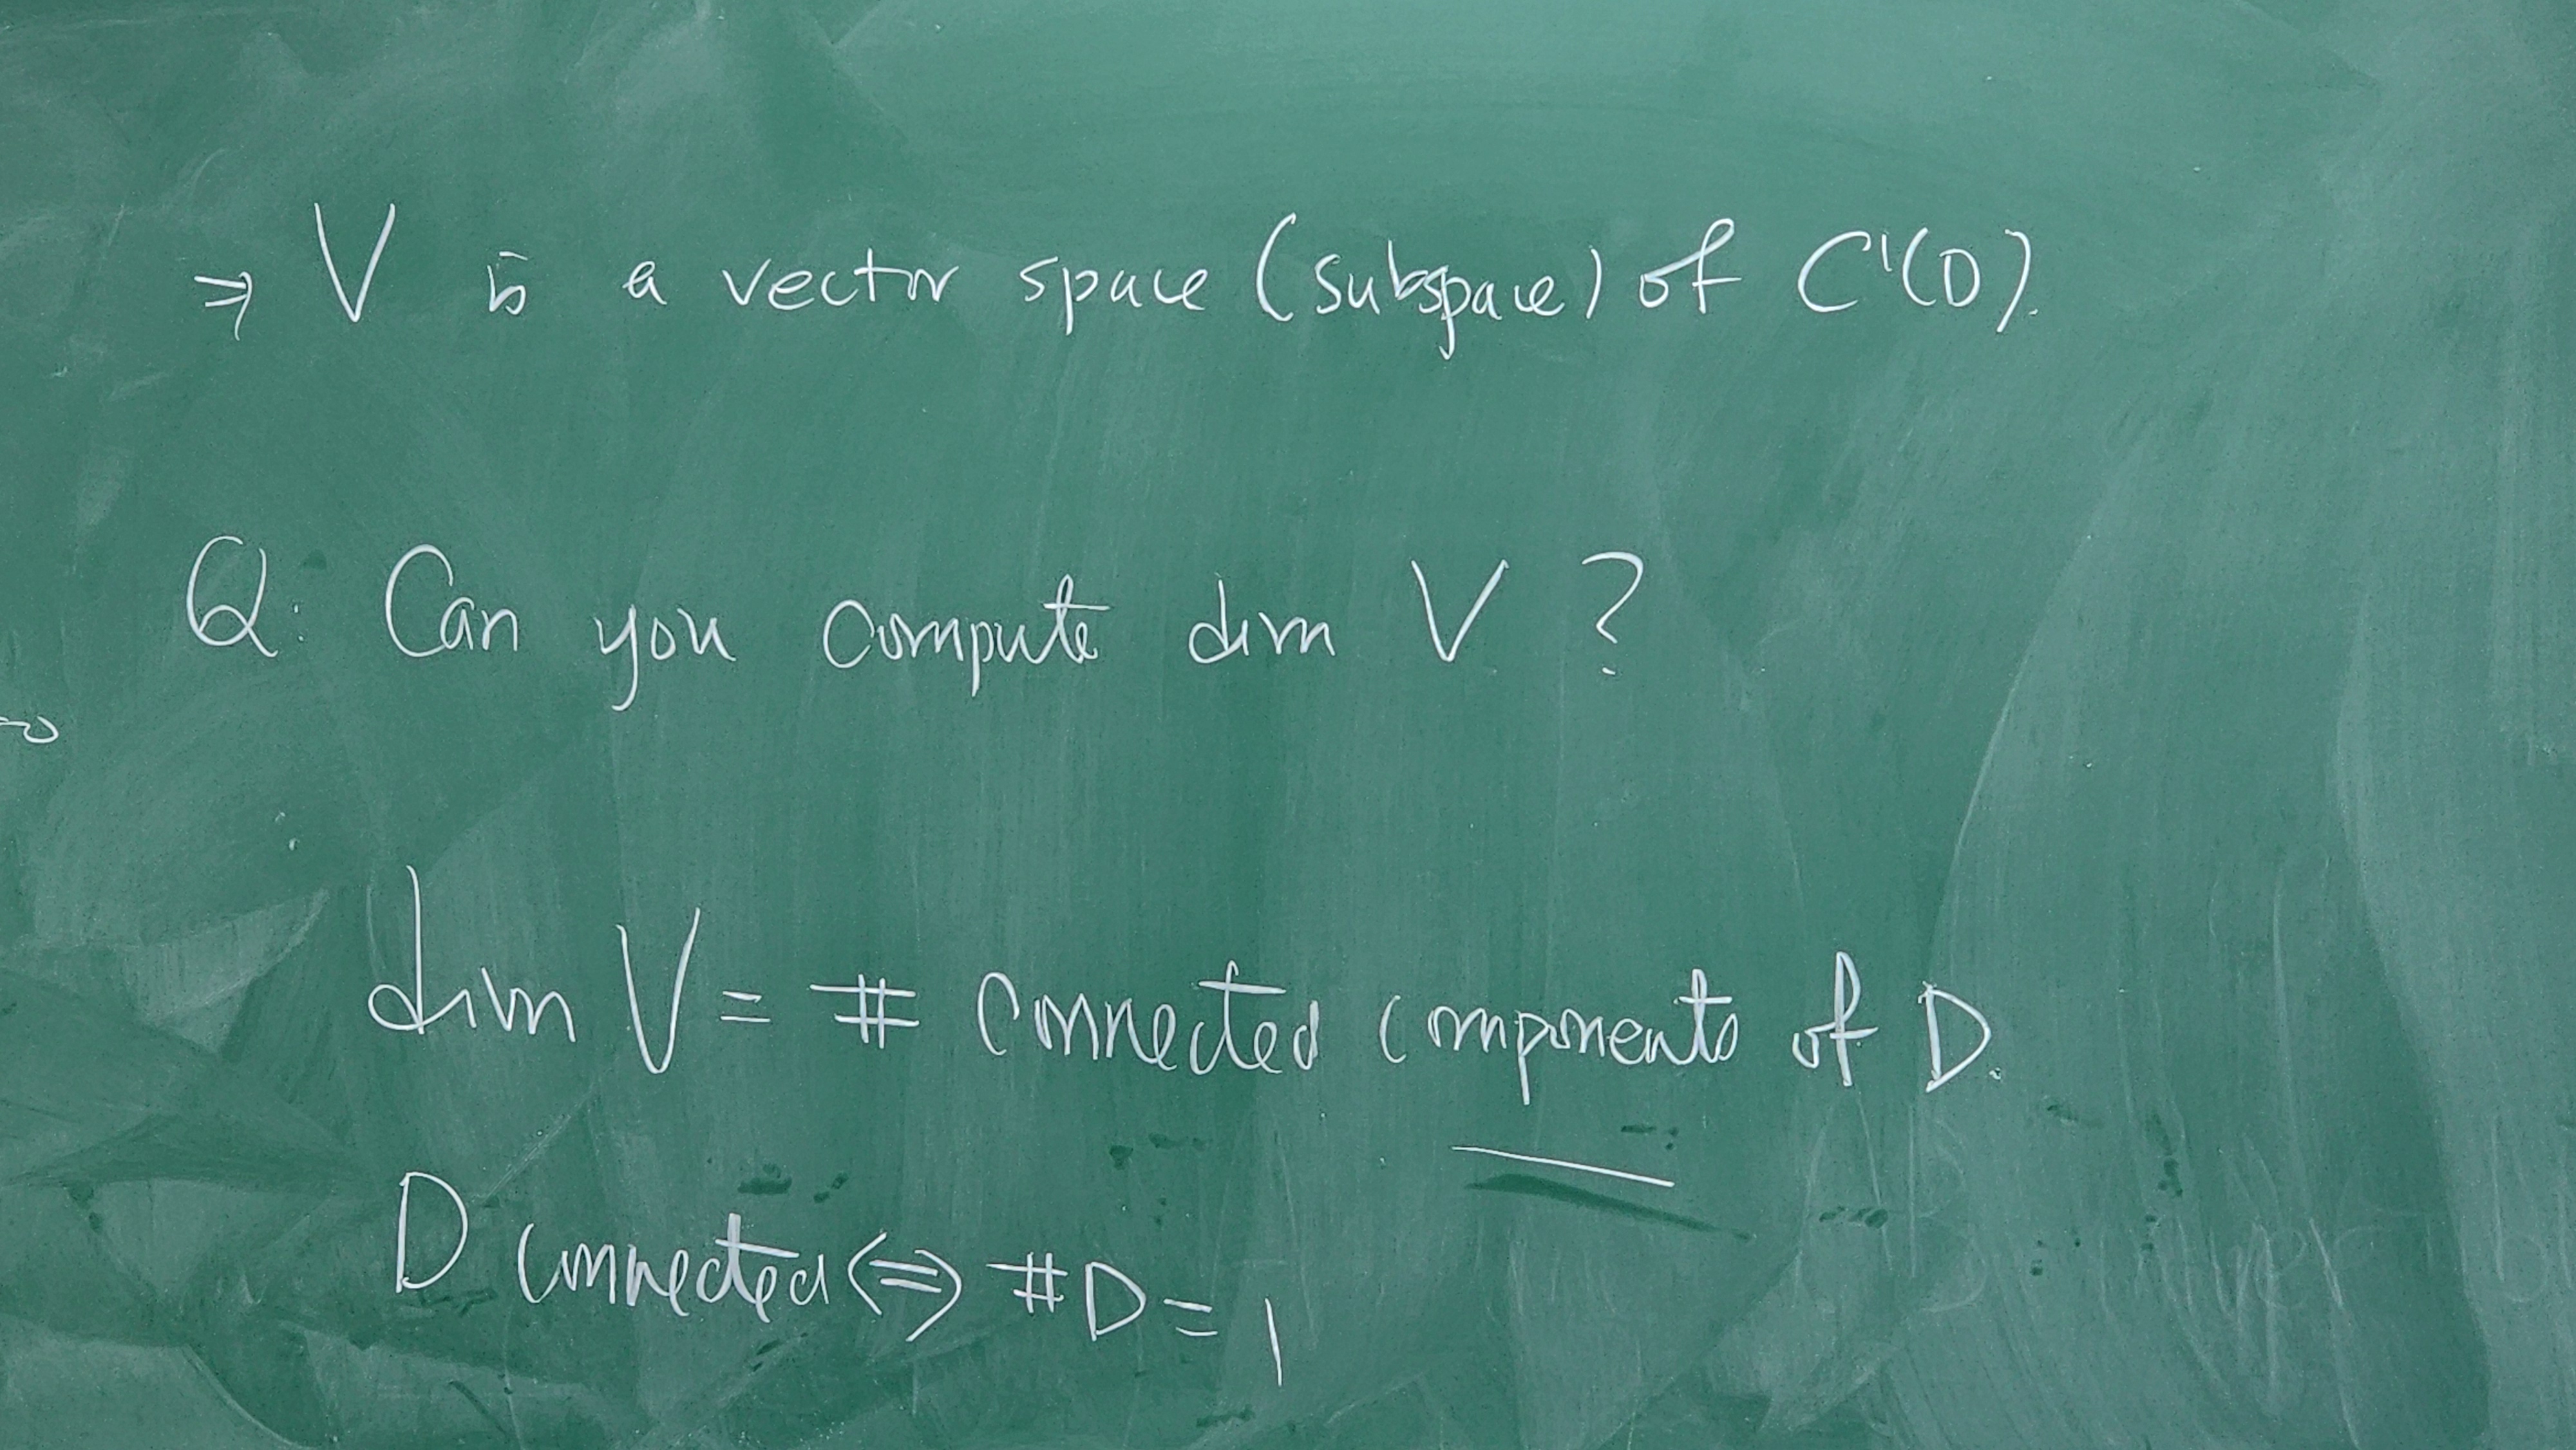 ⇒ V is a vector space (subspace) of C¹(D).
Q: Can you compute dim V ?
dim V = # connected components of D.
D connected ⇔ #D = 1